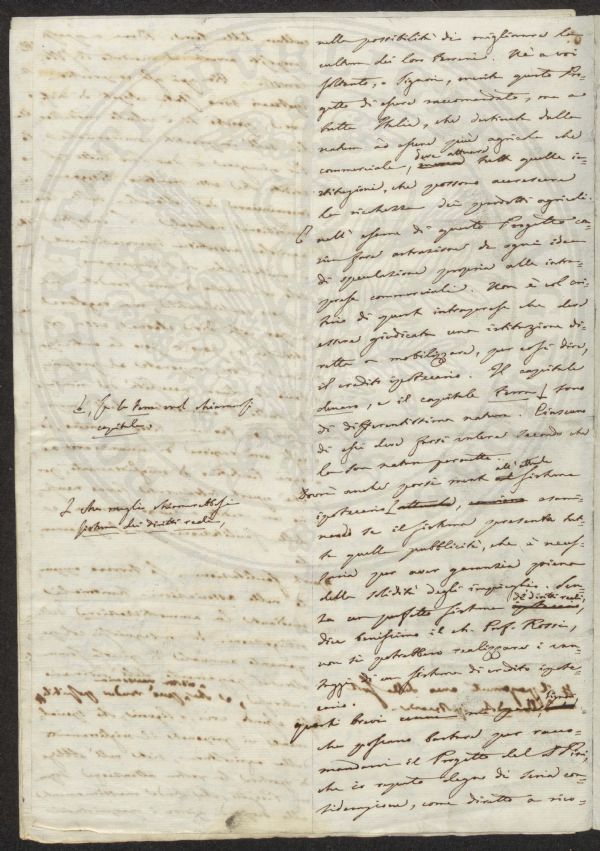 nella possibilità di migliorare la
cultura dei loro terreni. Nè a voi
soltanto, o Signori, questo Pro-
getto di essere raccomandato, ma a
tutta Italia, che destinata dalla
natura ad essere più agricola che
commerciale, deve attuare tutte quelle i-
stituzioni, che possono accrescere
la ricchezza dei prodotti agricoli.
nell'esame di questo Progetto con-
vien fare astrazione da ogni idea
di speculazione propria alle intra-
prese commerciali. Non è col cri-
terio di queste intraprese che deve
essere giudicata una istituzione di-
retta a mobilizzare, per così dire,
il credito ipotecario. Il capitale
denaro, e il capitale terra sono
di differentissima natura. Ciascuno
di essi deve farsi valere secondo che
la sua natura permette.
Dovrà anche porsi all'attuale sistema
ipotecario
nando se il sistema presenta tut-
ta quella pubblicità, che è neces-
saria per aver garanzia piena
della solidità degli impieghi. Sen-
za un perfetto sistema dei diritti reali,
dice benissimo il ch. Prof. Rossi,
non si potrebbero realizzare i van-
taggi di un sistema di credito ipote-
cario.
questi brevi cenni
che possono bastare per racco-
mandarvi il Progetto del S.
che io reputo degno di seria con-
siderazione, come diretto a
se la terra vuol chiamarsi
capitale
che meglio chiamerebbesi
sistema dei diritti reali,